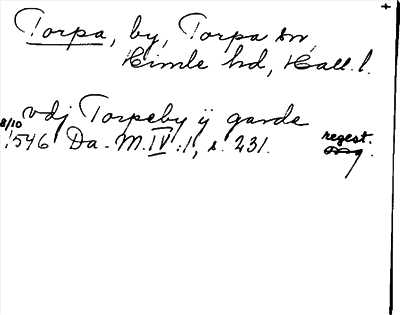 +
Torpa, by, Torpa sn,
Himle hd, Hall. l.
vdj Torpeby ÿ garde
8/10 1546 Da. M. IV:1, s. 231. regest.